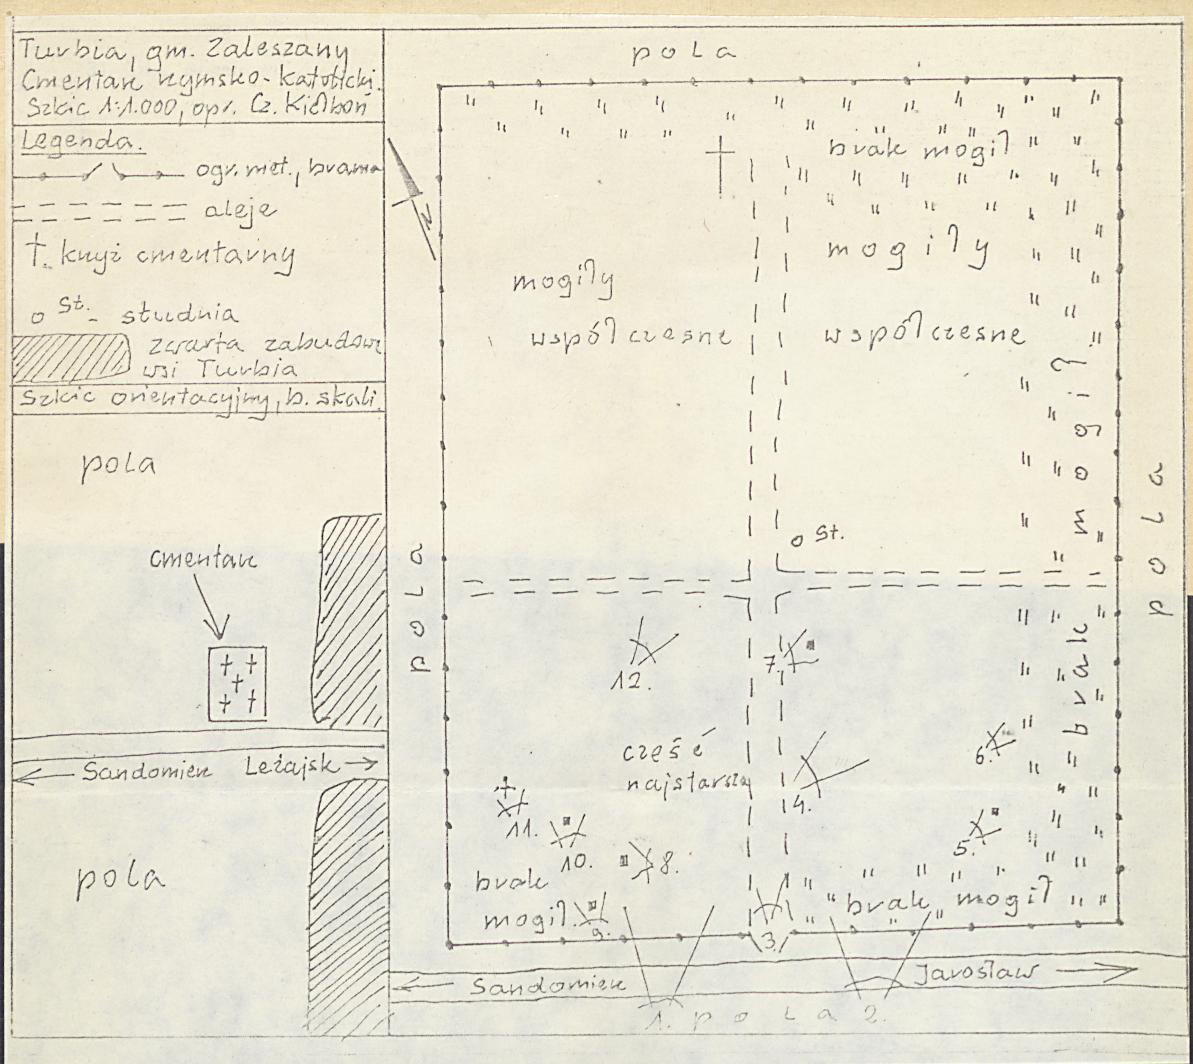 Turbia, gm. Zaleszany
Cmentarz rzymsko-katolicki.
Szkic 1:1.000, opr. Cz. Kiełboń
Legenda.
ogr. met., brama
aleje
krzyż cmentarny
St. - studnia
zwarta zabudow
wsi Turbia
Szkic orientacyjny, b. skali.
pola
cmentarz
Sandomierz Leżajsk
pola
pola
brak mogił
mogiły
współczesne
mogiły
współczesne
brak mogił
pola
pola
St.
12.
7.
część
najstarsza
6.
4.
5.
11.
10.
8.
9.
3.
brak
mogił.
brak mogił
Sandomierz
Jarosław
1. pola 2.